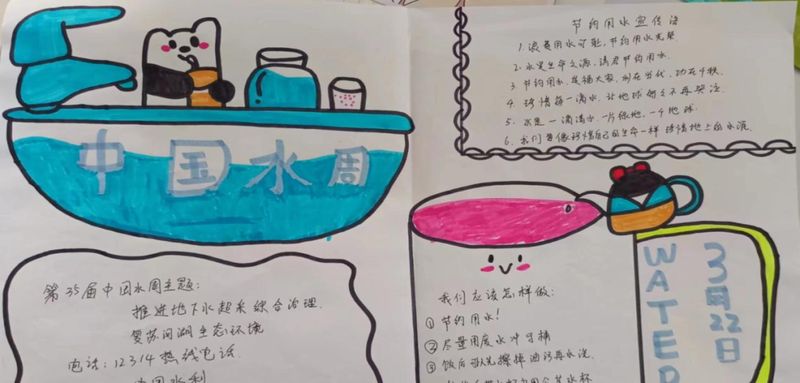 中国水周
第35届中国水周主题:
推进地下水超采综合治理
复苏河湖生态环境
电话:12314热线电话
中国水利
节约用水宣传语
1.浪费用水可耻,节约用水光荣
2.水是生命之源,请君节约用水.
3.节约用水 造福大家,利在当代,功在千秋.
4.珍惜每一滴水,让地球
5.水是一滴滴水,一片绿地,一个地球
6.我们要像珍惜自己的生命一样珍惜地上的水源
WATER
3月22日
我们应该怎样做:
①节约用水!
②尽量用废水冲马桶
③饭后可先擦掉油污再水洗.